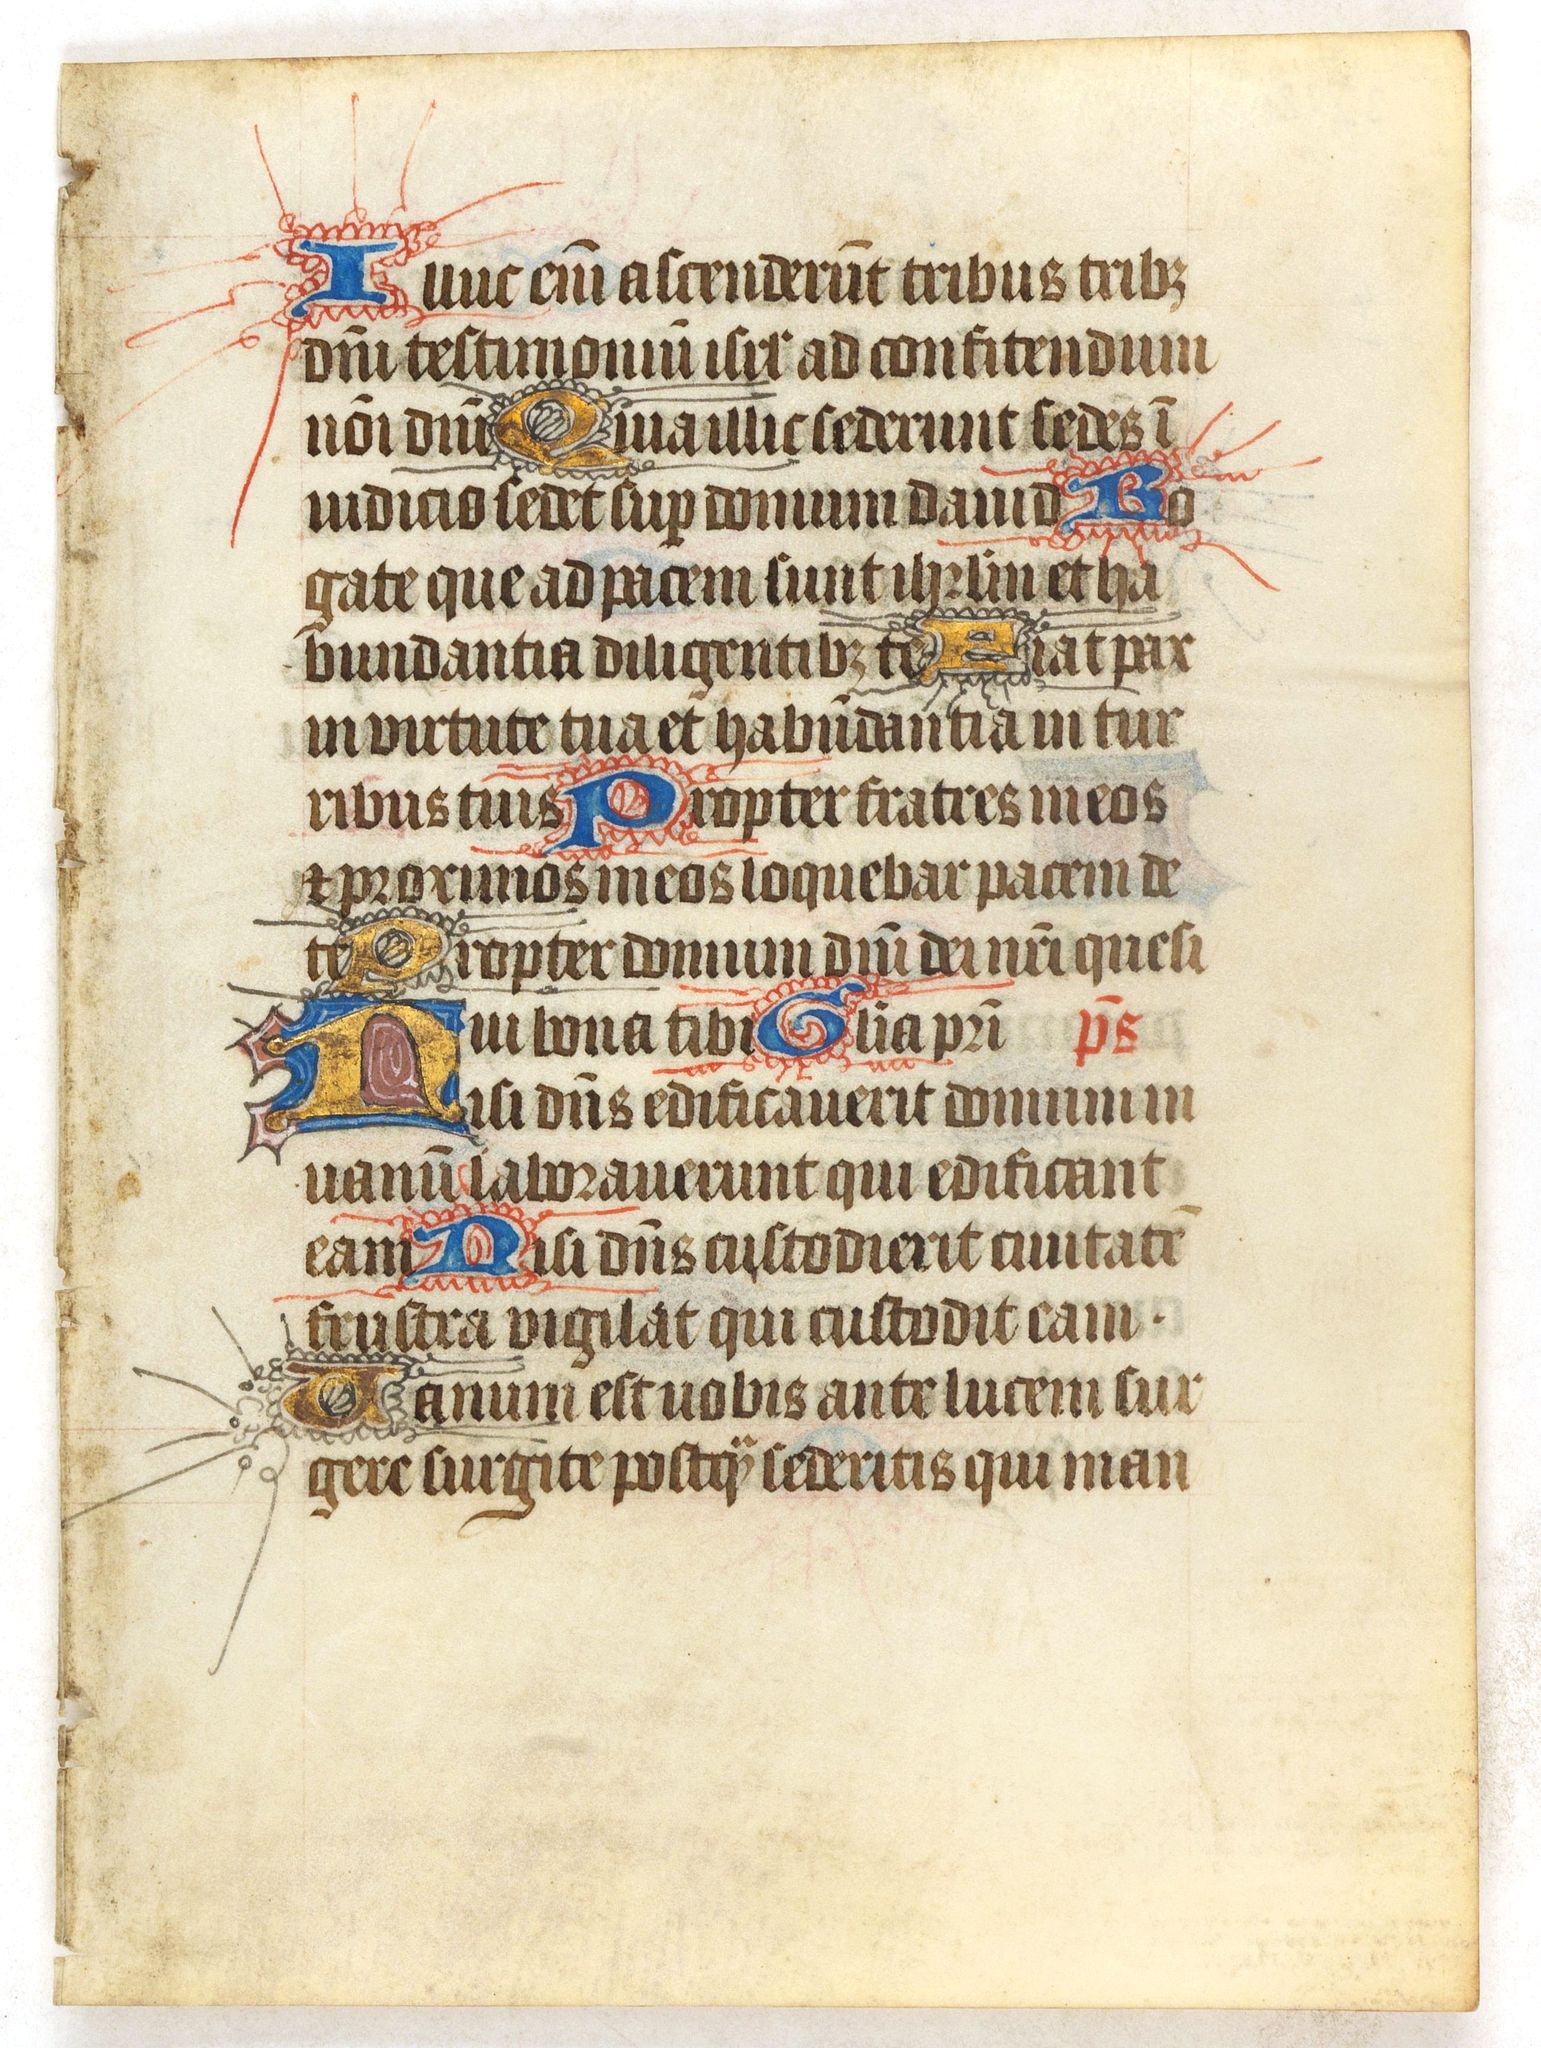 Illuc eni͞ ascenderu͞t tribus tribꝫ
dn͞i testimoniu͞ isrl͞ ad confitendum
no͞i dn͞i Quia illic sederunt sedes i͞
iudicio sedet sup̱ domum dauid Ro
gate que ad pacem sunt ihrl͞m et ha
bundantia diligentibꝫ te Fiat pax
in virtute tua et habu͞dantia in tur
ribus tuis Propter fratres meos
⁊ proximos meos loquebar pacem de
te Propter domum dn͞i dei nr͞i quesi
ui bona tibi Gl͞ia pr͞i p͞s
Nisi dn͞s edificauerit domum in
uanu͞ laborauerunt qui edificant
eam Nisi dn͞s custodierit ciuitate͞
frustra vigilat qui custodit eam ·
Uanum est uobis ante lucem sur
gere surgite postqᷓ sederitis qui man